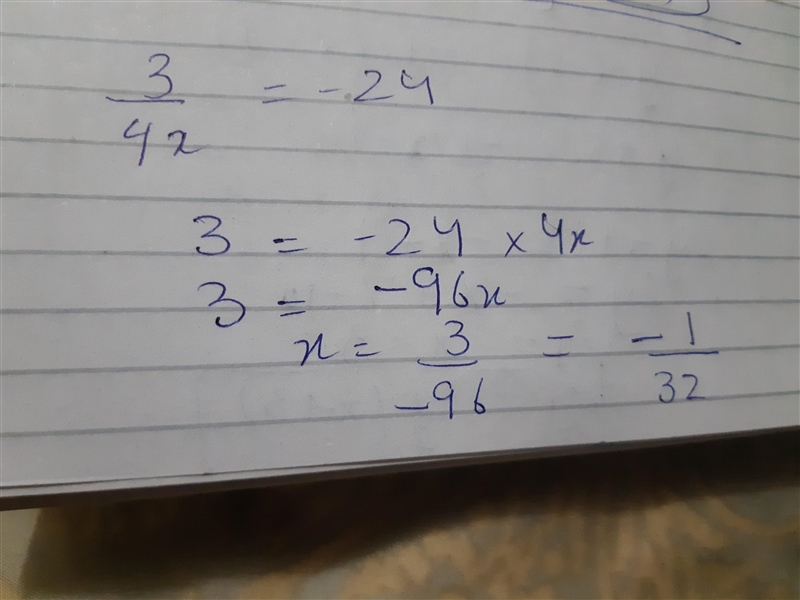 3/4x = -24
3 = -24 × 4x
3 = -96x
x = 3/-96 = -1/32